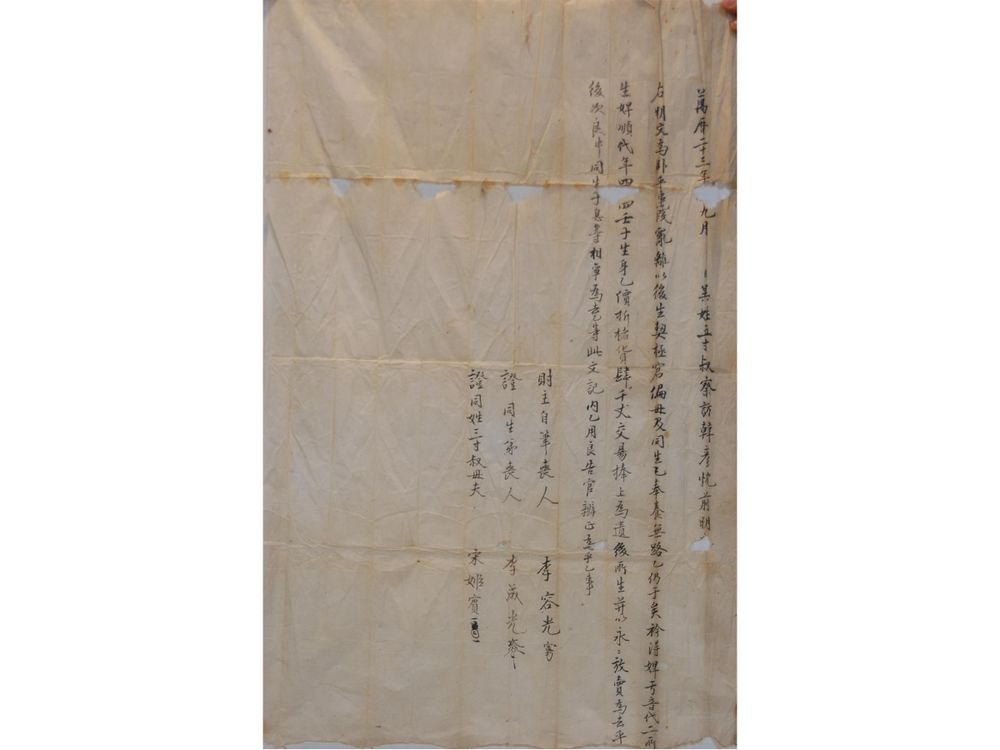 萬曆二十三年 九月 日異姓五寸叔察訪韓彦忱前明文
右明文爲臥乎事段亂離以後生契極窘偏母及同生乙奉養無路乙仍于矣衿得婢于音代二所
生婢順代年四 四壬子生身乙價折 貨肆千丈交易捧上爲遣後所生并以永永放賣爲去乎
後次良中同生子息等相爭爲去等此文記內乙用良告官辨正爲乎乙事
財主自筆喪人 李容光
證同生弟喪人 李成光
證同姓三寸叔母夫 宋 賓